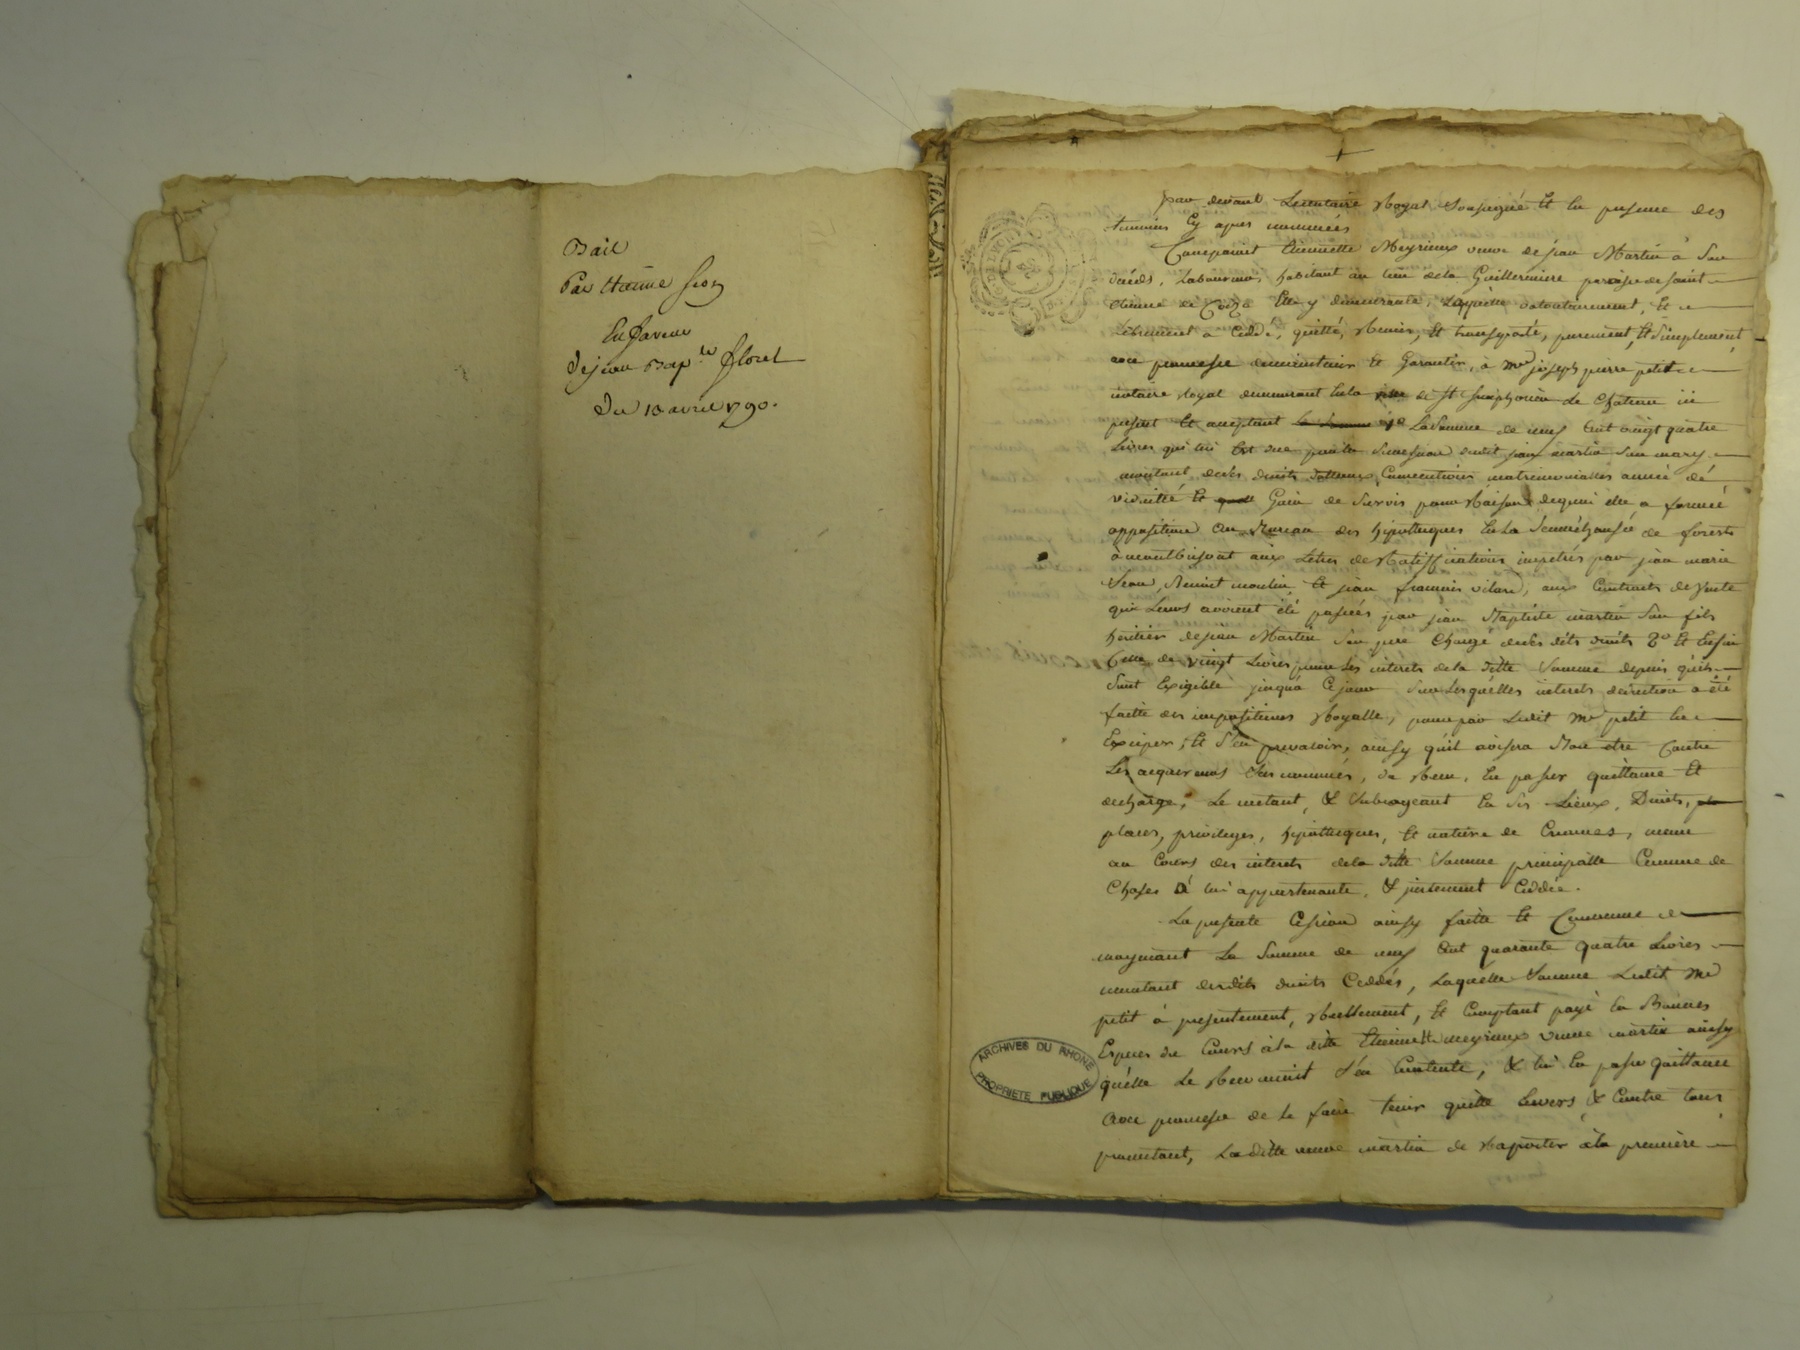 Bail
Par Etienne
En faveur
de jean Bap.te florel
Du 18 avril 1790.
par devant Le notaire Royal Soussigné Et En presence des
temoins Cy apres nommées
Comparait Etiennette Meyrieux veuve de jean Martin à Son
decès, Laboureur, habitant au lieu dela Guillermiere paroisse de Saint
Etienne de Coize Elle y demeurante, Laquelle volontairement, Et
Librement a Cedé, quitté, Remis, Et transporté, purement, Et Simplement,
avec promesse de maintenir Et Garantir, à me joseph pierre petit
notaire Royal demeurant En la de st simphorien Le Chateau ici
present Et aceptant La Somme de neuf Cent vingt quatre
Livres qui lui Est due par la Sucession dudit jean martin Son mary
montant de ses droits dotteaux, Conventions matrimoniales année de
viduitté Et Gain de Survie pour Raison dequoi elle a formée
opposition au Bureau des hipotheques En La Sennéchausée de forests
à montbrison aux Lettres de Ratiffications impetrés par jean marie
Benoit moulin, Et jean francois vilard, aux Contrats de Vente
qui Leurs avoient été passées par jean Baptiste martin Son fils
heritier de jean Martin Son pere Chargé de ses dits droits 2o Et Enfin
Celle de vingt Livres pour Les interets de la ditte Somme depuis quils
Sont Exigible jusqua Ce jour Sur Lesquelles interets deduction a été
faitte des impositions Royalle, pour par Ledit me petit
Exciper, Et S'en prevaloir, ainsy quil avisera Bon etre Contre
Les acquereurs nommés, du Recu, En passer quittance Et
decharge, Le mettant, & Subrogeant En Ses Lieux, Droits,
places, privileges, hipotheques, Et nature de Creances, meme
au Cours des interets dela ditte Somme principalle Comme de
Choses à lui appartenante, & justement Ceddée.
La presente Cession ainsy faitte Et Convenue
moyenant La Somme de neuf Cent quarante quatre Livres
montant desdits droits Ceddés, Laquelle Somme Ledit me
petit à presentement, Reellement, Et Comptant payé En Bonnes
Especes du Cours à la ditte Etiennette meyrieux veuve martin ainsy
quelle Le Reconnoit S'en Contente, & lui En passe quittance
avec promesse de le faire tenir quitte Envers & Contre tous
promettant, La ditte veuve martin de Raporter à la premiere
ARCHIVES DU RHONE
PROPRIETE PUBLIQUE